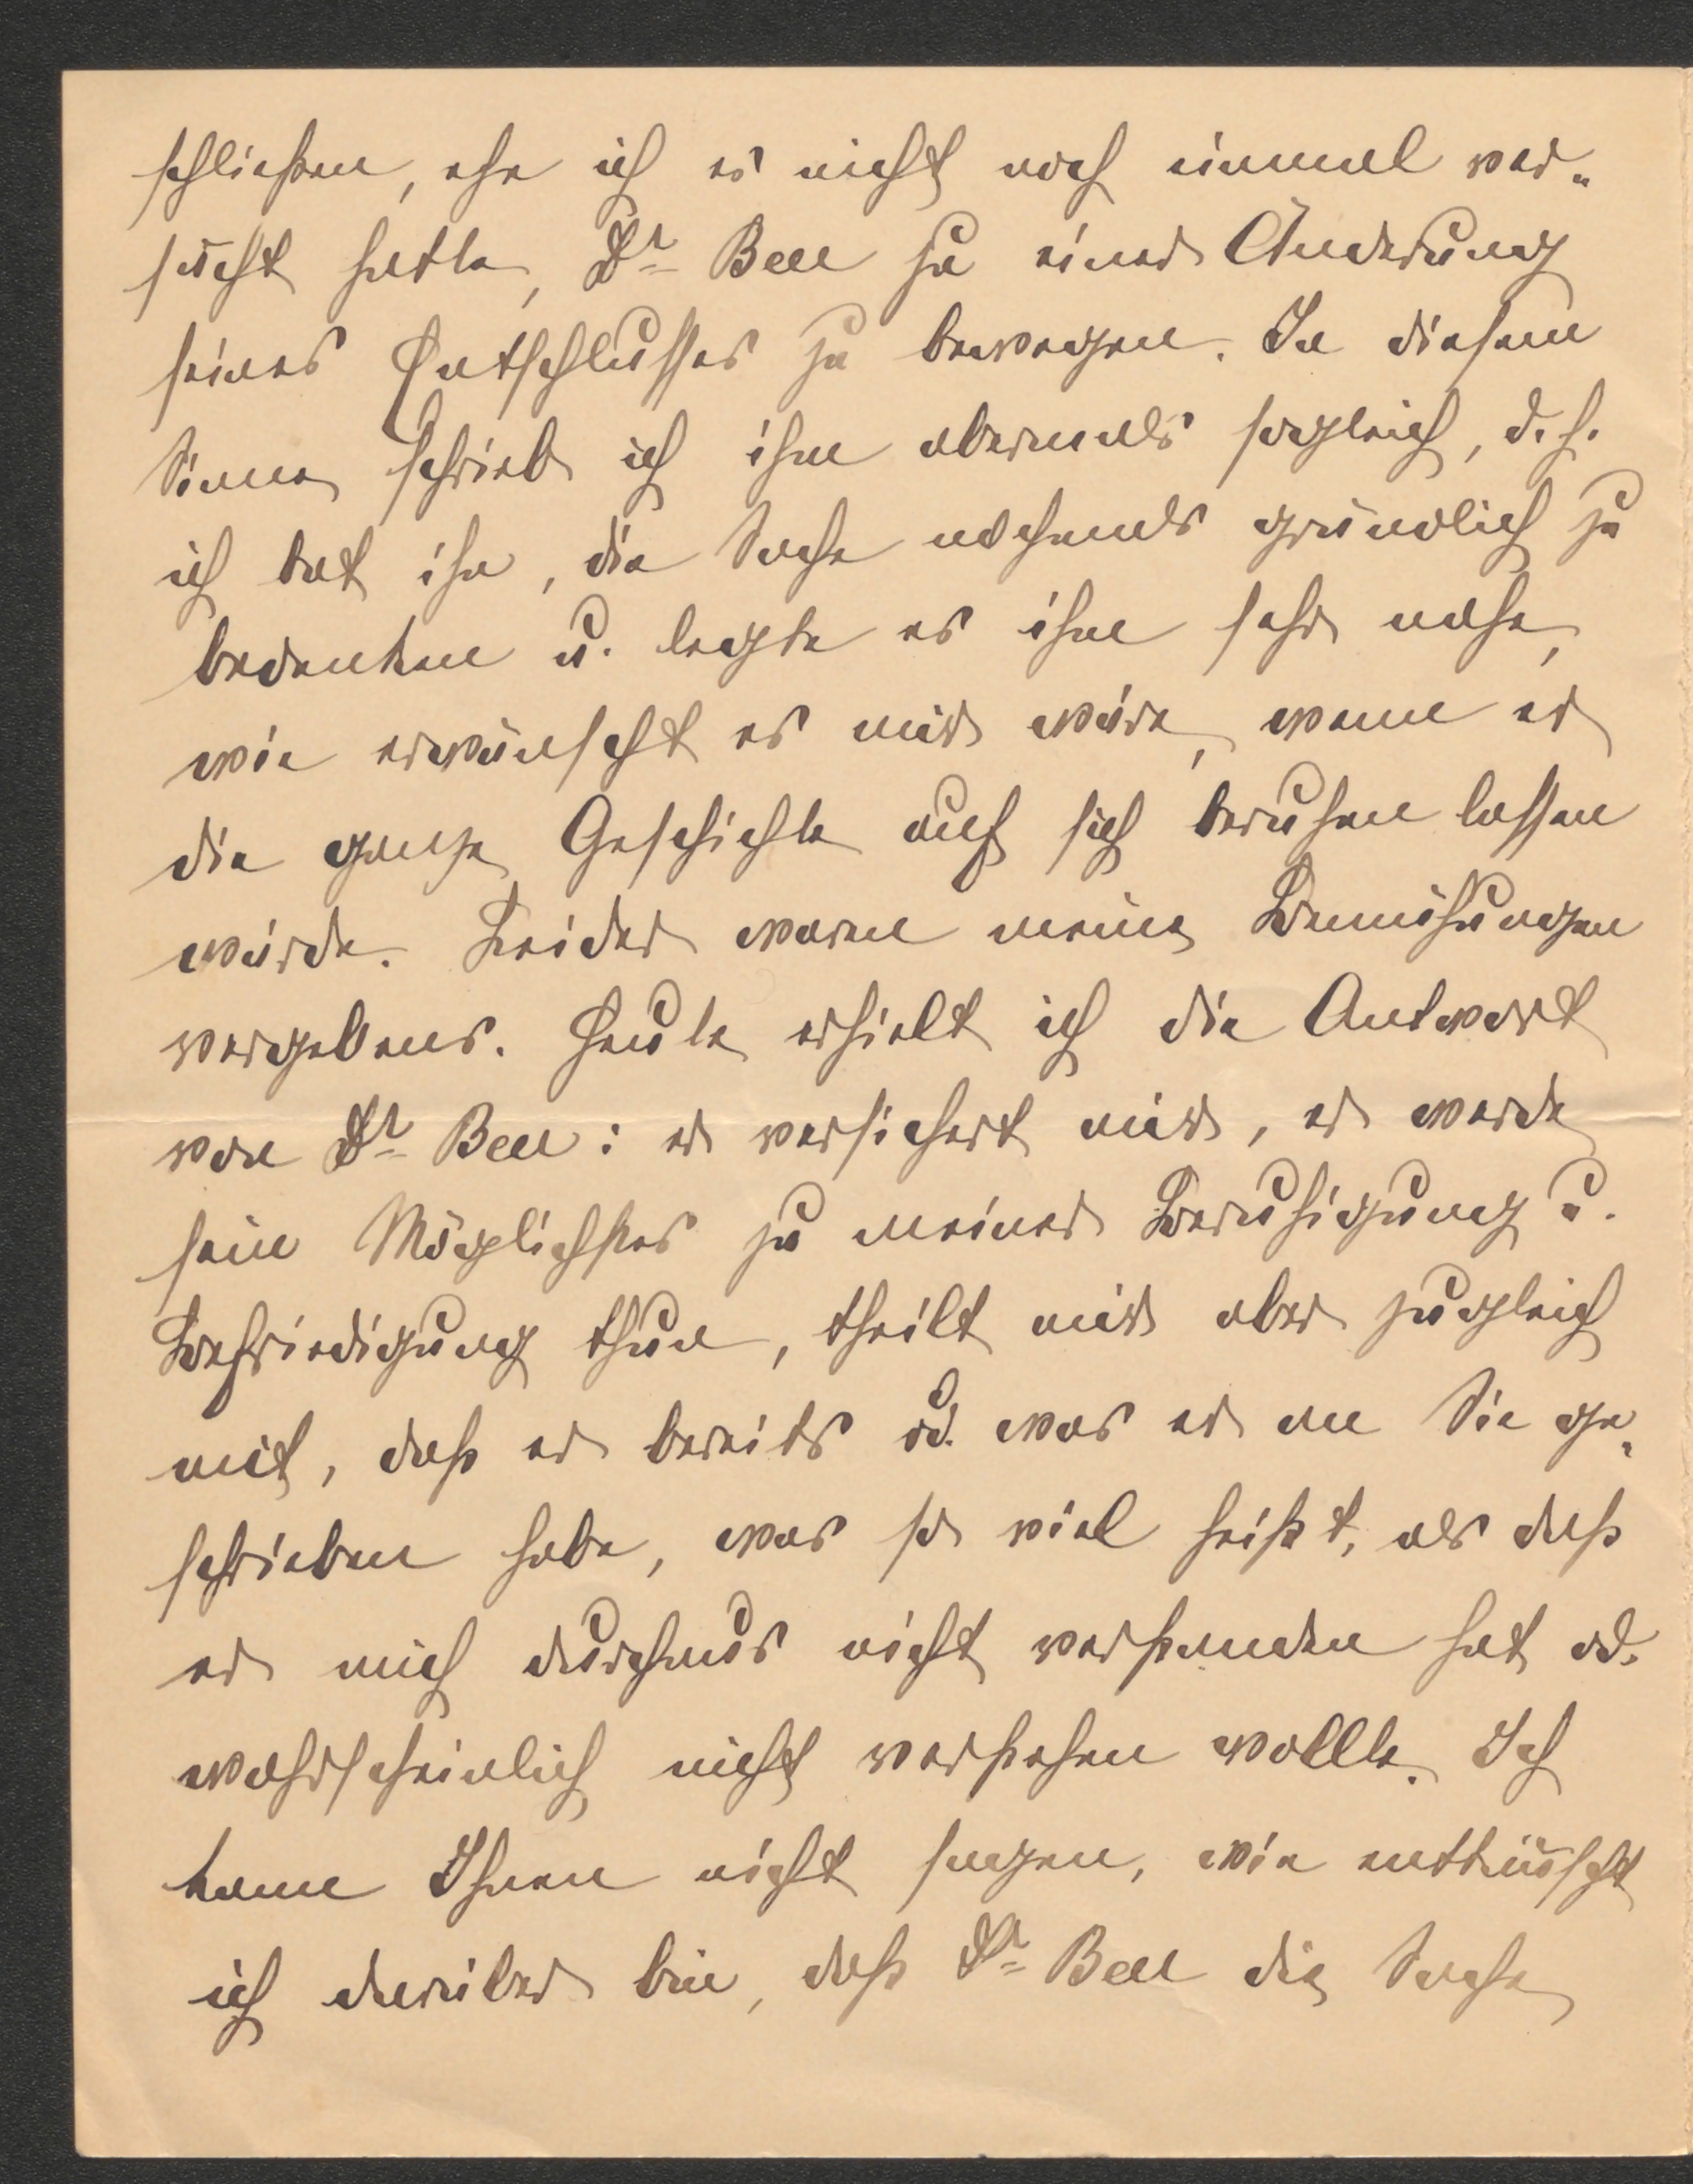 schließen, ehe ich es nicht noch einmal ver„
sucht hatte, Dr Bell zu einer Änderung
seines Entschlusses zu bewegen. In diesem
Sinne schrieb ich ihm abermals sogleich, d. h.
ich bat ihn, die Sache nochmals gründlich zu
bedenken u. legte es ihm sehr nahe,
wie erwünscht es mir wäre, wenn er
die ganze Geschichte auf sich beruhen lassen
würde. Leider waren meine Bemühungen
vergebens. Heute erhielt ich die Antwort
von Dr Bell: er versichert mir, er werde
sein Möglichstes zu meiner Beruhigung u.
Befriedigung thun, theilt mir aber zugleich
mit, daß er bereits od. was er an Sie ge„
schrieben habe, was so viel heißt, als daß
er mich durchaus nicht verstanden hat od.
wahrscheinlich nicht verstehen wollte. Ich
kann Ihnen nicht sagen, wie enttäuscht
ich darüber bin, daß Dr Bell die Sache